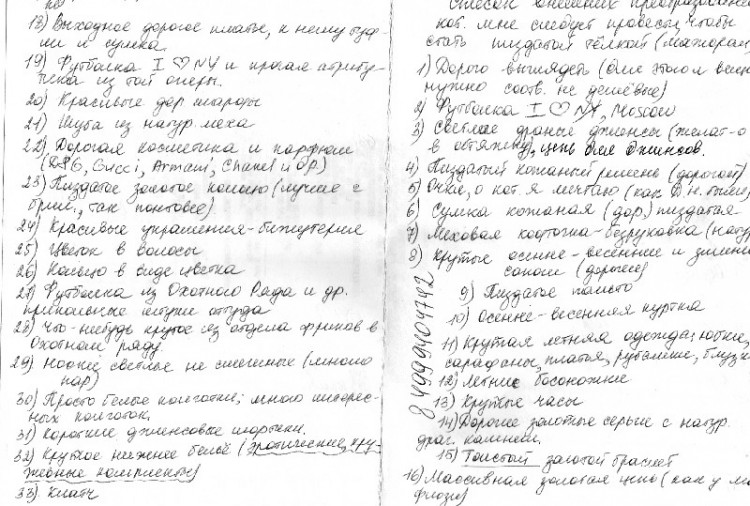 Список внешних преобразований,
кот. мне следует провести, чтобы
стать пиздатой тёлкой (мажоркой)
1) Дорого выглядеть (для этого и вещи
нужно соотв. не дешёвые)
2) Футболка I ♡ NY, Moscow
3) Светлые драные джинсы (желат-о
в обтяжку), цепь для джинсов.
4) Пиздатый кожаный ремень (дорогой)
5) Очки, о кот. я мечтаю (как
6) Сумка кожаная (дор.) пиздатая
7) Меховая кофточка-безрукавка (натур
8) Крутые осенне-весенние и зимние
сапоги (дорогие)
9) Пиздатое пальто
10) Осенне-весенняя куртка
11) Крутая летняя одежда: юбки,
сарафаны, платья, рубашки, блузки
12) Летние босоножки
13) Крутые часы
14) Дорогие золотые серьги с натур.
драг. камнем.
15) Толстый золотой браслет
16) Массивная золотая цепь (как у
84999404742
18) Выходное дорогое платье, к нему туф
ли и сумка.
19) Футболка I ♡ NY и прочая атрибу-
тика из той оперы.
20) Красивые дор шарфы
21) Шуба из натур. меха
22) Дорогая косметика и парфюм
(D&G, Gucci, Armani, Chanel и др.)
23) Пиздатое золотое кольцо (лучше с
брил., так понтовее)
24) Красивые украшения-бижутерия
25) Цветок в волосы
26) Кольцо в виде цветка
27) Футболка из Охотного Ряда и др.
прикольные штуки оттуда
28) Что-нибудь крутое из отдела фриков в
Охотном ряду.
29) Носки светлые не смешные (много
пар)
30) Просто белые колготки; много интерес-
ных колготок.
31) Короткие джинсовые шортики.
32) Крутое нижнее бельё (эротические, кру-
жевные комплекты)
33) Клатч